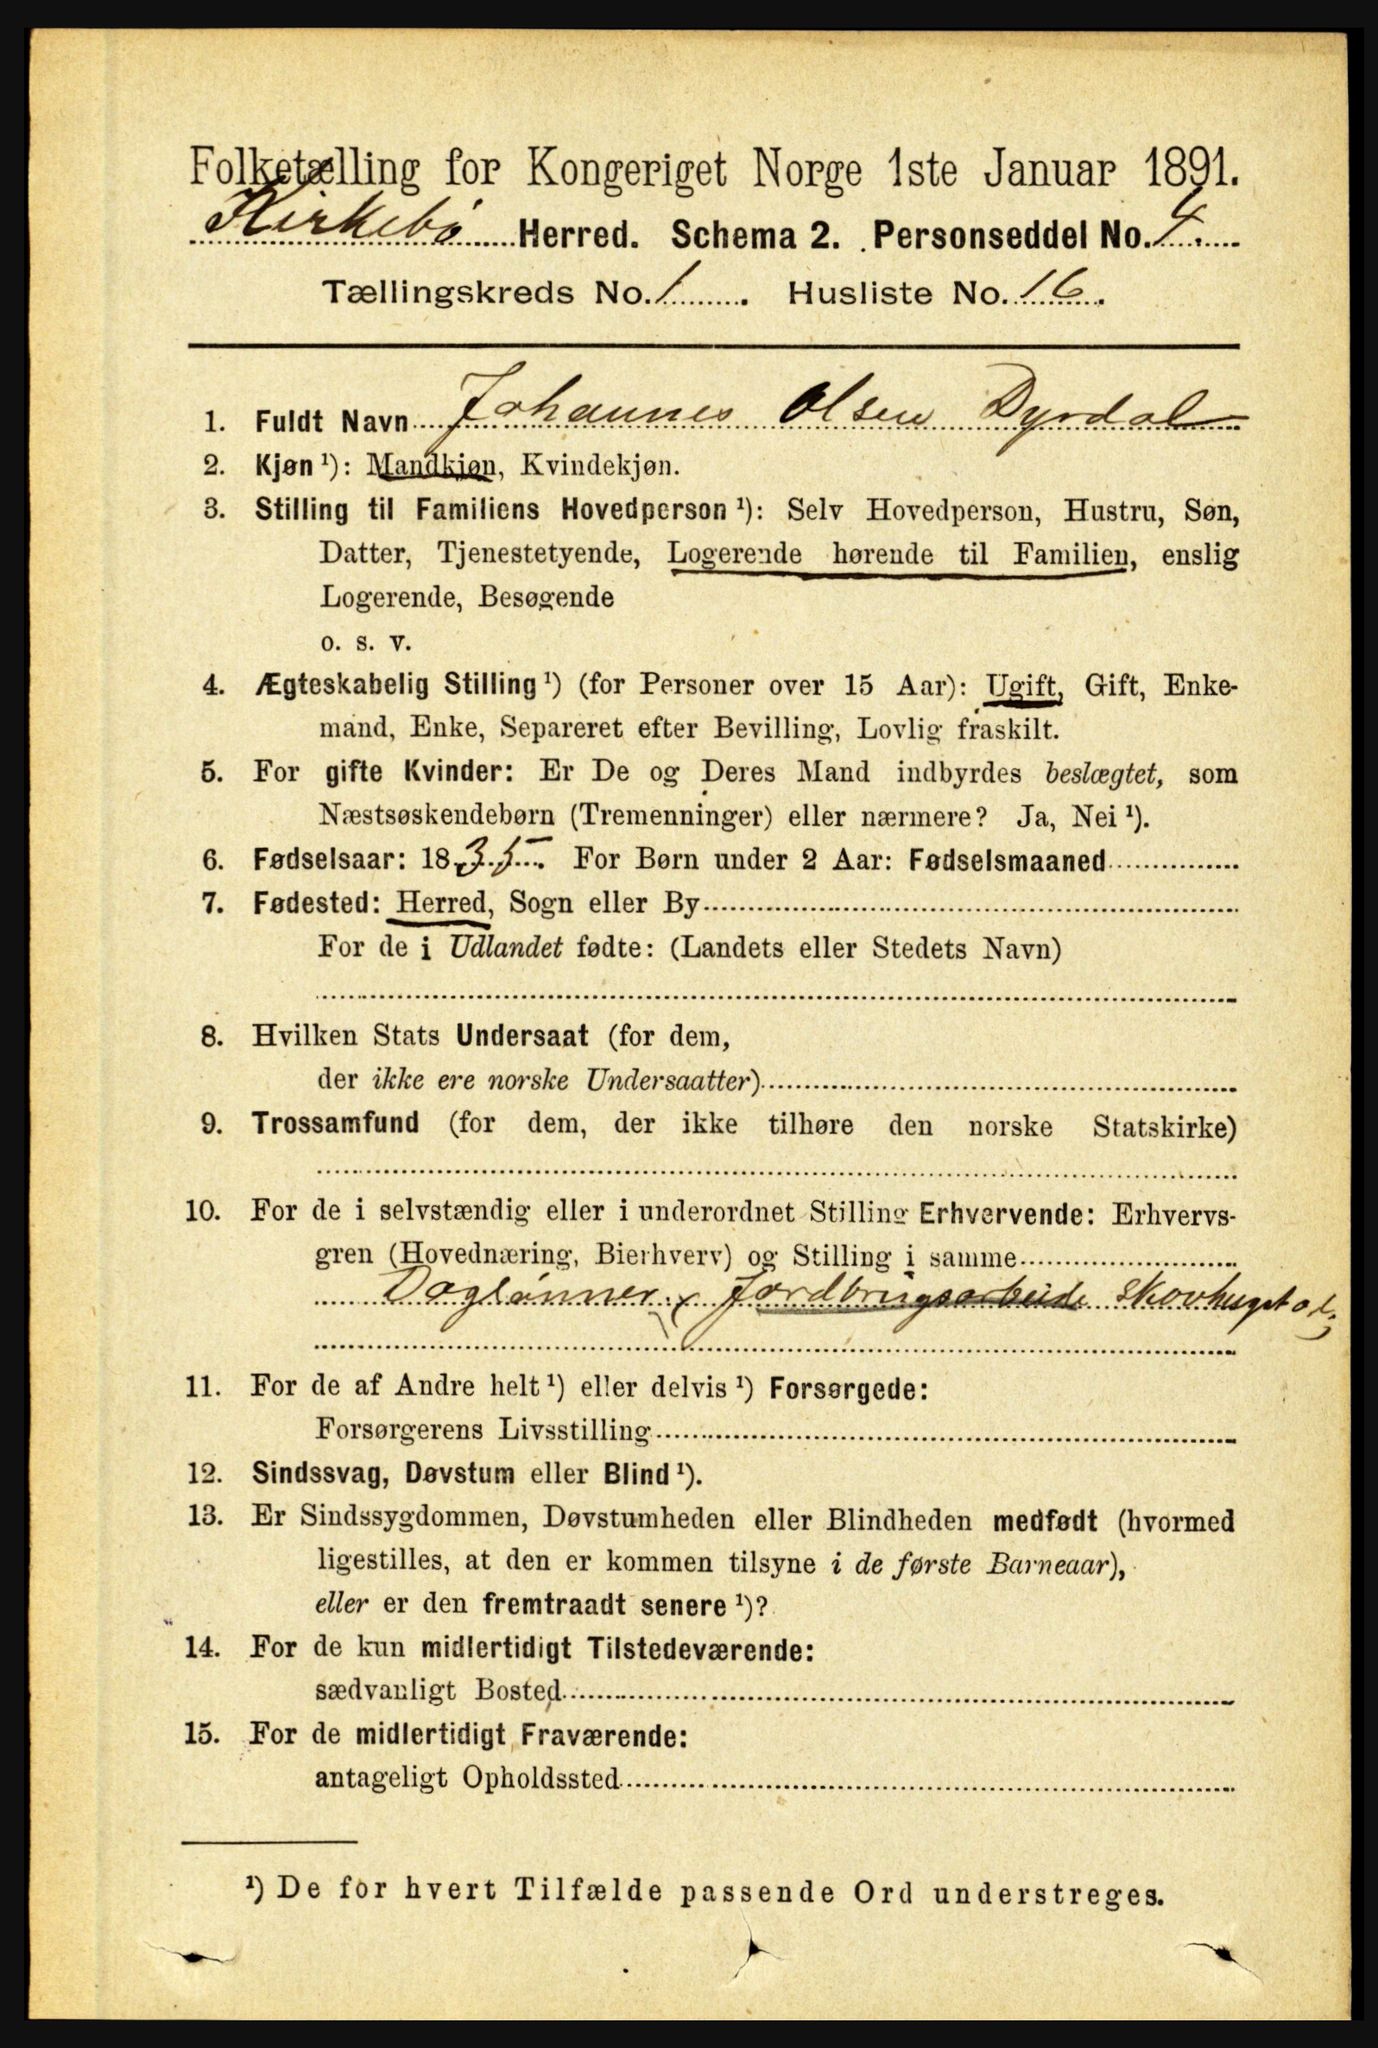 Folketælling for Kongeriget Norge 1ste Januar 1891.
Kirkebø Herred. Schema 2. Personseddel No. 4.
Tællingskreds No. 1. Husliste No. 16.
1. Fuldt Navn Johannes Olsen Dyrdal
2. Kjøn ¹): Mandkjøn, Kvindekjøn.
3. Stilling til Familiens Hovedperson ¹): Selv Hovedperson, Hustru, Søn,
Datter, Tjenestetyende, Logerende hørende til Familien, enslig
Logerende, Besøgende
o. s. v.
4. Ægteskabelig Stilling ¹) (for Personer over 15 Aar): Ugift, Gift, Enke-
mand, Enke, Separeret efter Bevilling, Lovlig fraskilt.
5. For gifte Kvinder: Er De og Deres Mand indbyrdes beslægtet, som
Næstsøskendebørn (Tremenninger) eller nærmere? Ja, Nei ¹).
6. Fødselsaar: 1835. For Børn under 2 Aar: Fødselsmaaned
7. Fødested: Herred, Sogn eller By
For de i Udlandet fødte: (Landets eller Stedets Navn)
8. Hvilken Stats Undersaat (for dem,
der ikke ere norske Undersaatter)
9. Trossamfund (for dem, der ikke tilhøre den norske Statskirke)
10. For de i selvstændig eller i underordnet Stilling Erhvervende: Erhvervs-
gren (Hovednæring, Bierhverv) og Stilling i samme
Daglønner, Jordbrugsarbeide skovhugst o.l.
11. For de af Andre helt ¹) eller delvis ¹) Forsørgede:
Forsørgerens Livsstilling
12. Sindssvag, Døvstum eller Blind ¹).
13. Er Sindssygdommen, Døvstumheden eller Blindheden medfødt (hvormed
ligestilles, at den er kommen tilsyne i de første Barneaar),
eller er den fremtraadt senere ¹)?
14. For de kun midlertidigt Tilstedeværende:
sædvanligt Bosted
15. For de midlertidigt Fraværende:
antageligt Opholdssted
¹) De for hvert Tilfælde passende Ord understreges.